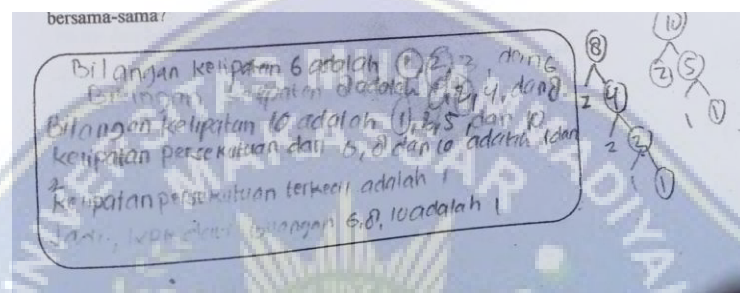 bersama-sama?
Bilangan kelipatan 6 adalah 1, 2, 3, dan 6
Bilangan kelipatan 8 adalah 1, 2, 4, dan 8.
Bilangan kelipatan 10 adalah 1, 2, 5, dan 10
kelipatan persekutuan dari 6, 8 dan 10 adalah 1 dan
2
Kelipatan persekutuan terkecil adalah 1
Jadi, bilangan 6, 8, 10 adalah 1
8
2 4
2 2
1 1
10
2 5
1 1
UNIVERSITAS MUHAMMADIYAH
MAKASSAR